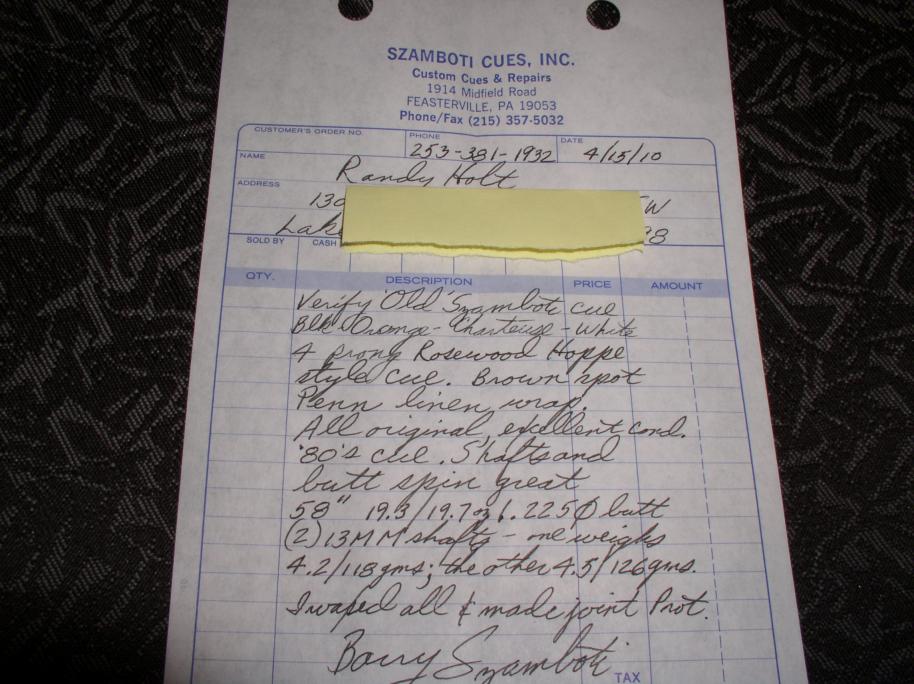 SZAMBOTI CUES, INC.
Custom Cues & Repairs
1914 Midfield Road
FEASTERVILLE, PA 19053
Phone/Fax (215) 357-5032
CUSTOMER'S ORDER NO. PHONE 253-381-1932 DATE 4/15/10
NAME Randy Holt
ADDRESS 130 W
Lake 98
SOLD BY CASH
QTY. DESCRIPTION PRICE AMOUNT
Verify 'Old' Szamboti cue
Blk Orange - Charteuse - White
4 prong Rosewood Hoppe
style cue. Brown spot
Penn linen wrap.
All original, excellent cond.
'80's cue. Shafts and
butt spin great
58" 19.3/19.7oz 1.225Ø butt
(2) 13MM shafts - one weighs
4.2/118gms; the other 4.5/126gms.
I waxed all & made joint Prot.
Barry Szamboti
TAX